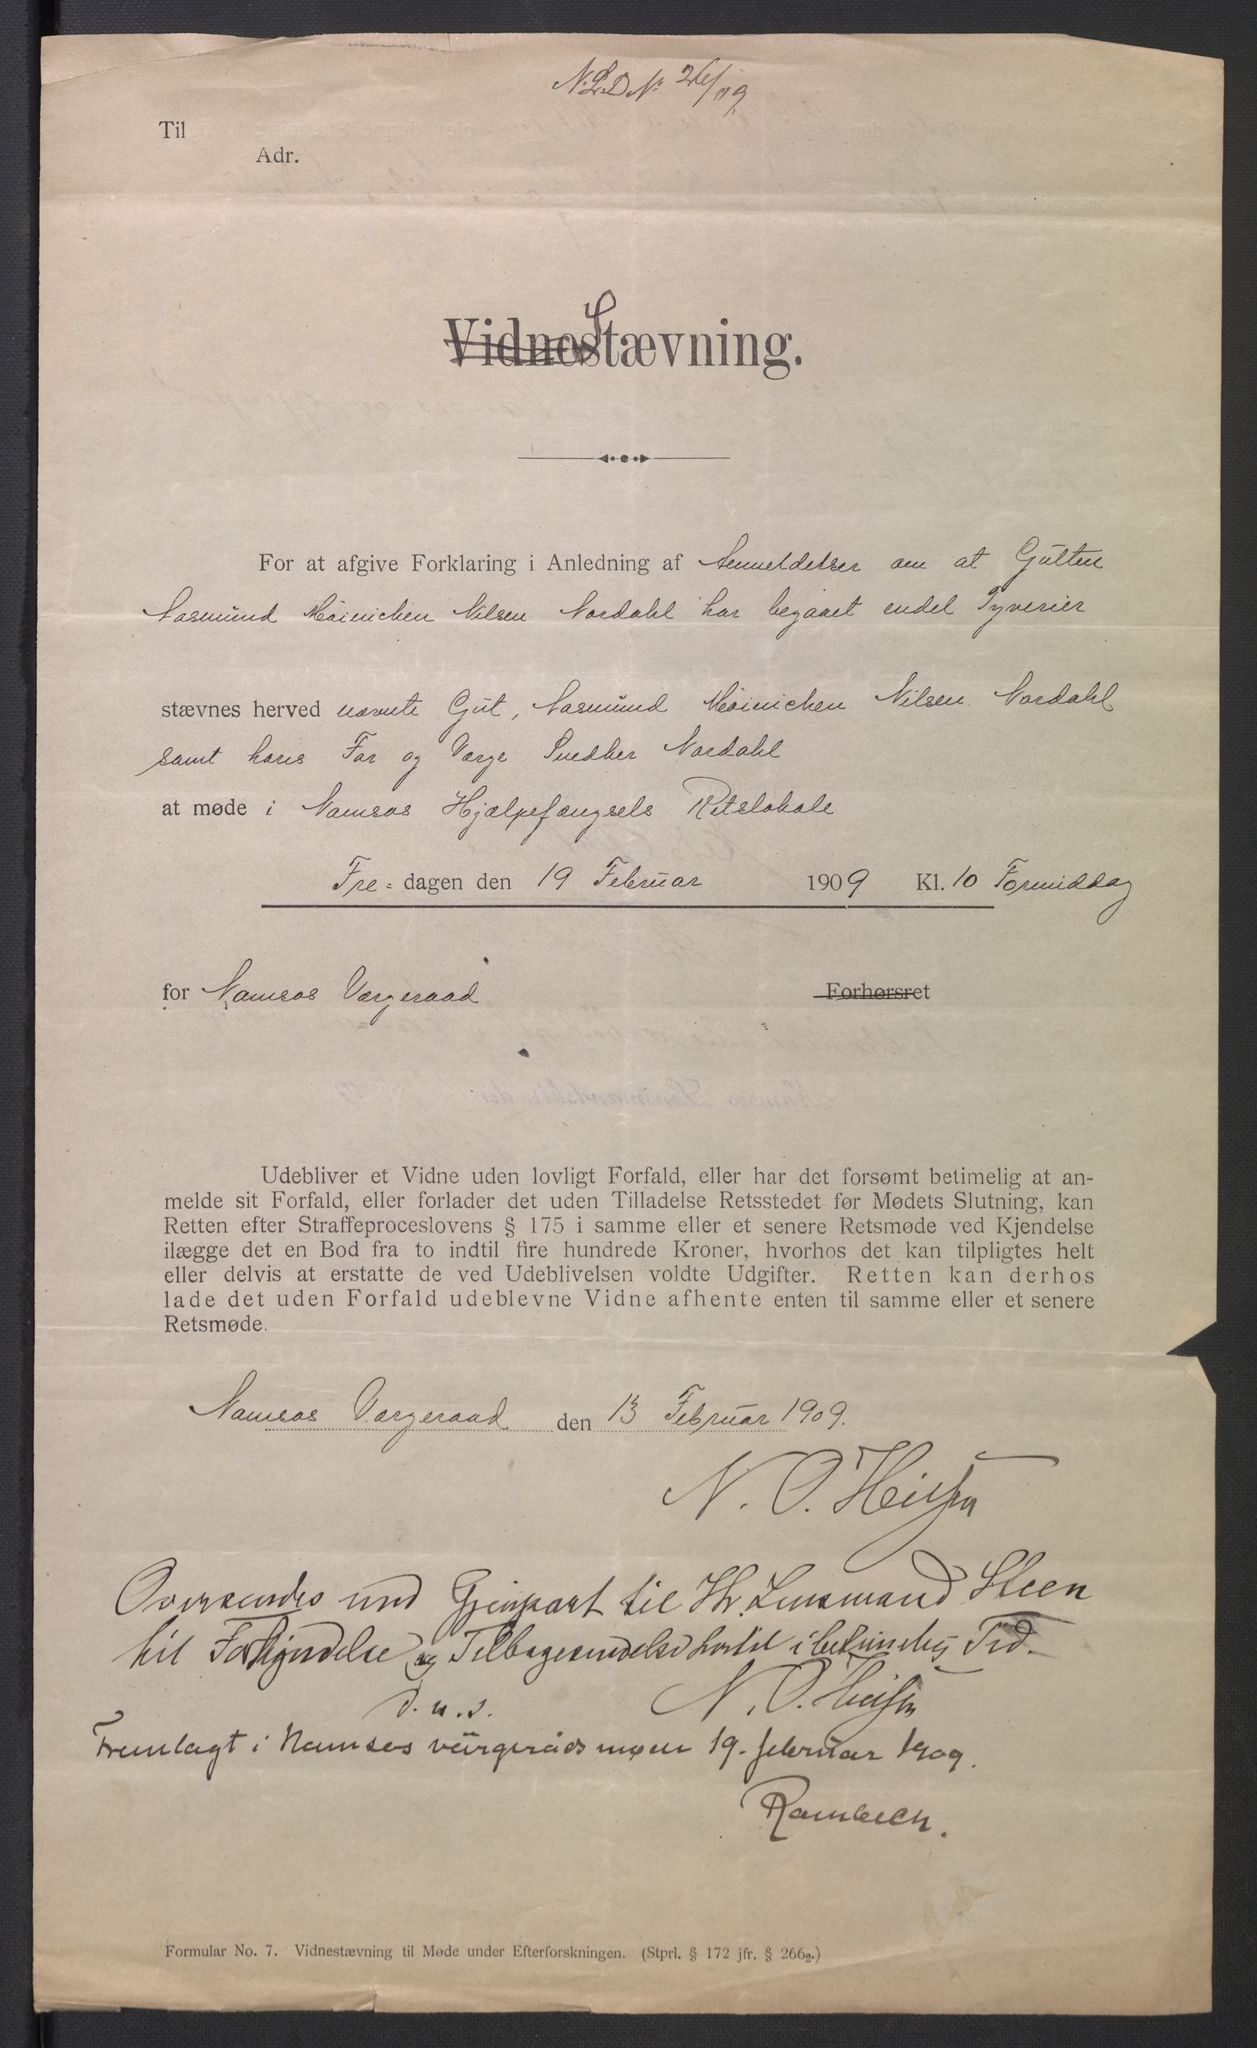 N.L.D. No 26/09
Til
Adr.
Vidnestævning. S
For at afgive Forklaring i Anledning af Anmeldelser om at Gutten
Aasmund Meinichen Nilsen Nordahl har begaaet endel Tyverier
stævnes herved nævnte Gut, Aasmund Meinichen Nilsen Nordahl
samt hans Far og Værge Snedker Nordahl
at møde i Namsos Hjælpefængsels Retslokale
Fre-dagen den 19 Februar 1909 Kl. 10 Formiddag
for Namsos Værgeraad Forhørsret
Udebliver et Vidne uden lovligt Forfald, eller har det forsømt betimelig at an-
melde sit Forfald, eller forlader det uden Tilladelse Retsstedet før Mødets Slutning, kan
Retten efter Straffeproceslovens § 175 i samme eller et senere Retsmøde ved Kjendelse
ilægge det en Bod fra to indtil fire hundrede Kroner, hvorhos det kan tilpligtes helt
eller delvis at erstatte de ved Udeblivelsen voldte Udgifter. Retten kan derhos
lade det uden Forfald udeblevne Vidne afhente enten til samme eller et senere
Retsmøde.
Namsos Værgeraad den 13 Februar 1909.
N. O.
Oversendes med Gjenpart til Hr. Lensmand Steen
til Forkyndelse og Tilbagesendelse hertil i betimelig Tid.
D.u.s. N. O.
Fremlagt i Namsos värgeråds møte 19. februar 1909.
Rambech.
Formular No. 7. Vidnestævning til Møde under Efterforskningen. (Stprl. § 172 jfr. § 266₂.)